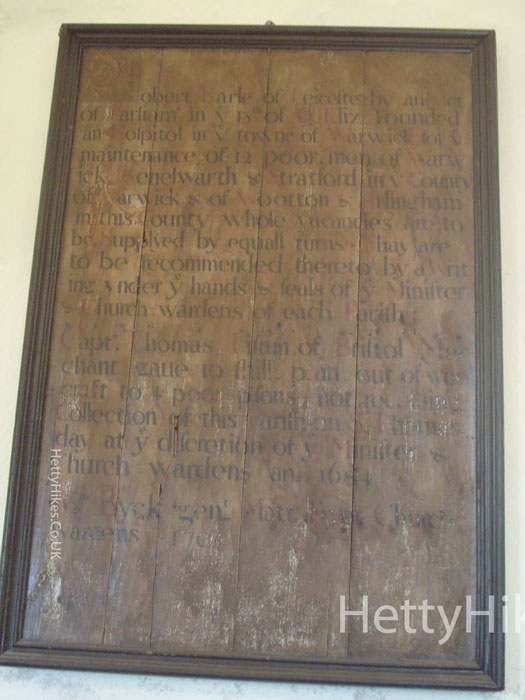 Robert Earle of Leicester by an Act
of Parliam in ẙ 13th of Q Eliz Founded
an Hospitol in ẙ towne of Warwick for ẙ
maintenance of 12 poor men of Warw
ick, Kenelwarth & Stratford in ẙ County
of Warwick & of Wootton & Arlingham
in this County whole vacancies are to
be supplyed by equall turns Thay are
to be recommended thereto by a Writ
ing vnder ẙ hands & seals of ẙ Minister
& Church wardens of each Parish
Capt. Thomas of Bristol
chant gaue 10 shill. p. an. out of
craft to 4 poor psons not
Collection of this Parish on S. Thomas
day at ẙ discretion of ẙ Minister &
Church wardens an. 1684
Byck gen. Church
wardens
HettyHikes.Co.UK
HettyHik